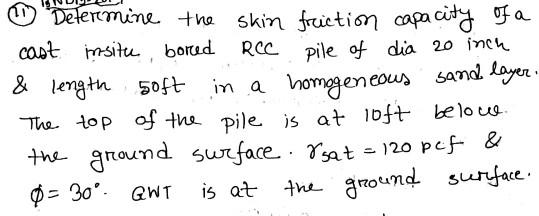 (11) Determine the skin friction capacity of a
cast insitu, bored RCC pile of dia 20 inch
& length 50ft in a homogeneous sand layer.
The top of the pile is at 10ft below
the ground surface. γsat = 120 pcf &
φ = 30°. GWT is at the ground surface.